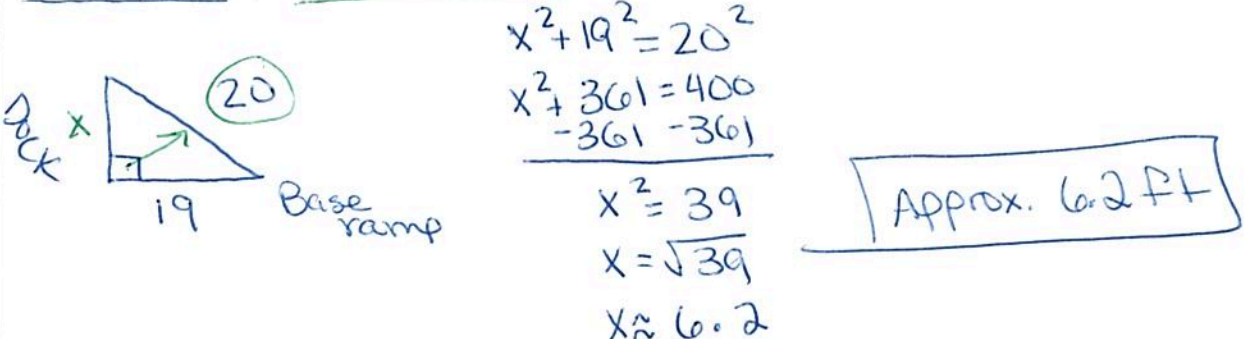 Dock
x
20
19
Base
ramp
x² + 19² = 20²
x² + 361 = 400
-361 -361
x² = 39
x = √39
x ≈ 6.2
Approx. 6.2 ft